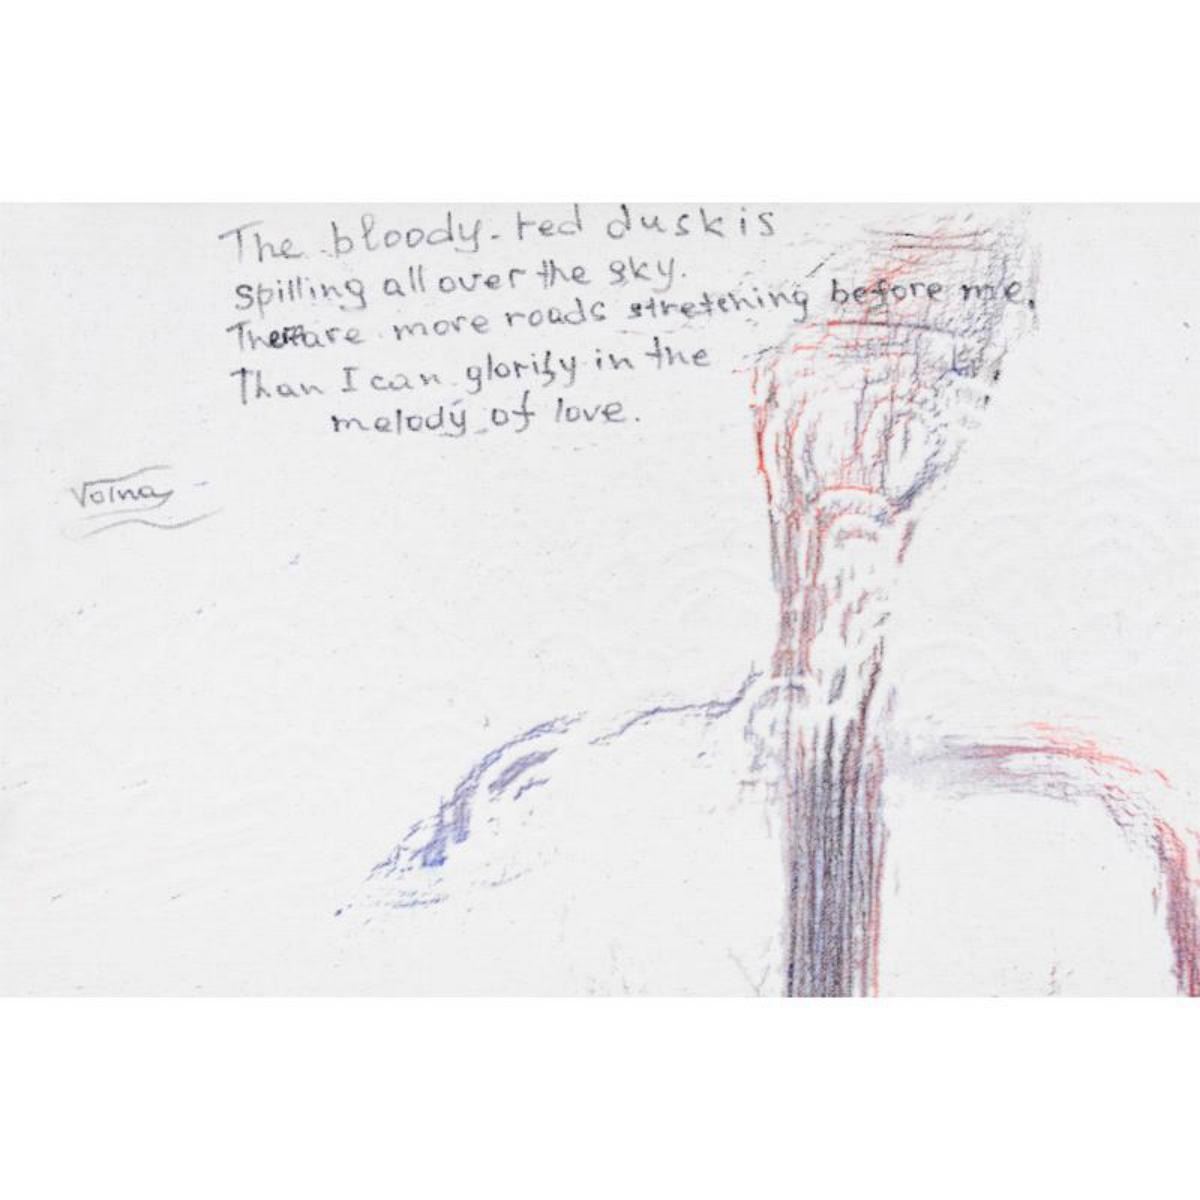 The bloody-red dusk is
spilling all over the sky.
There are more roads stretching before me,
Than I can glorify in the
melody of love.
Volna